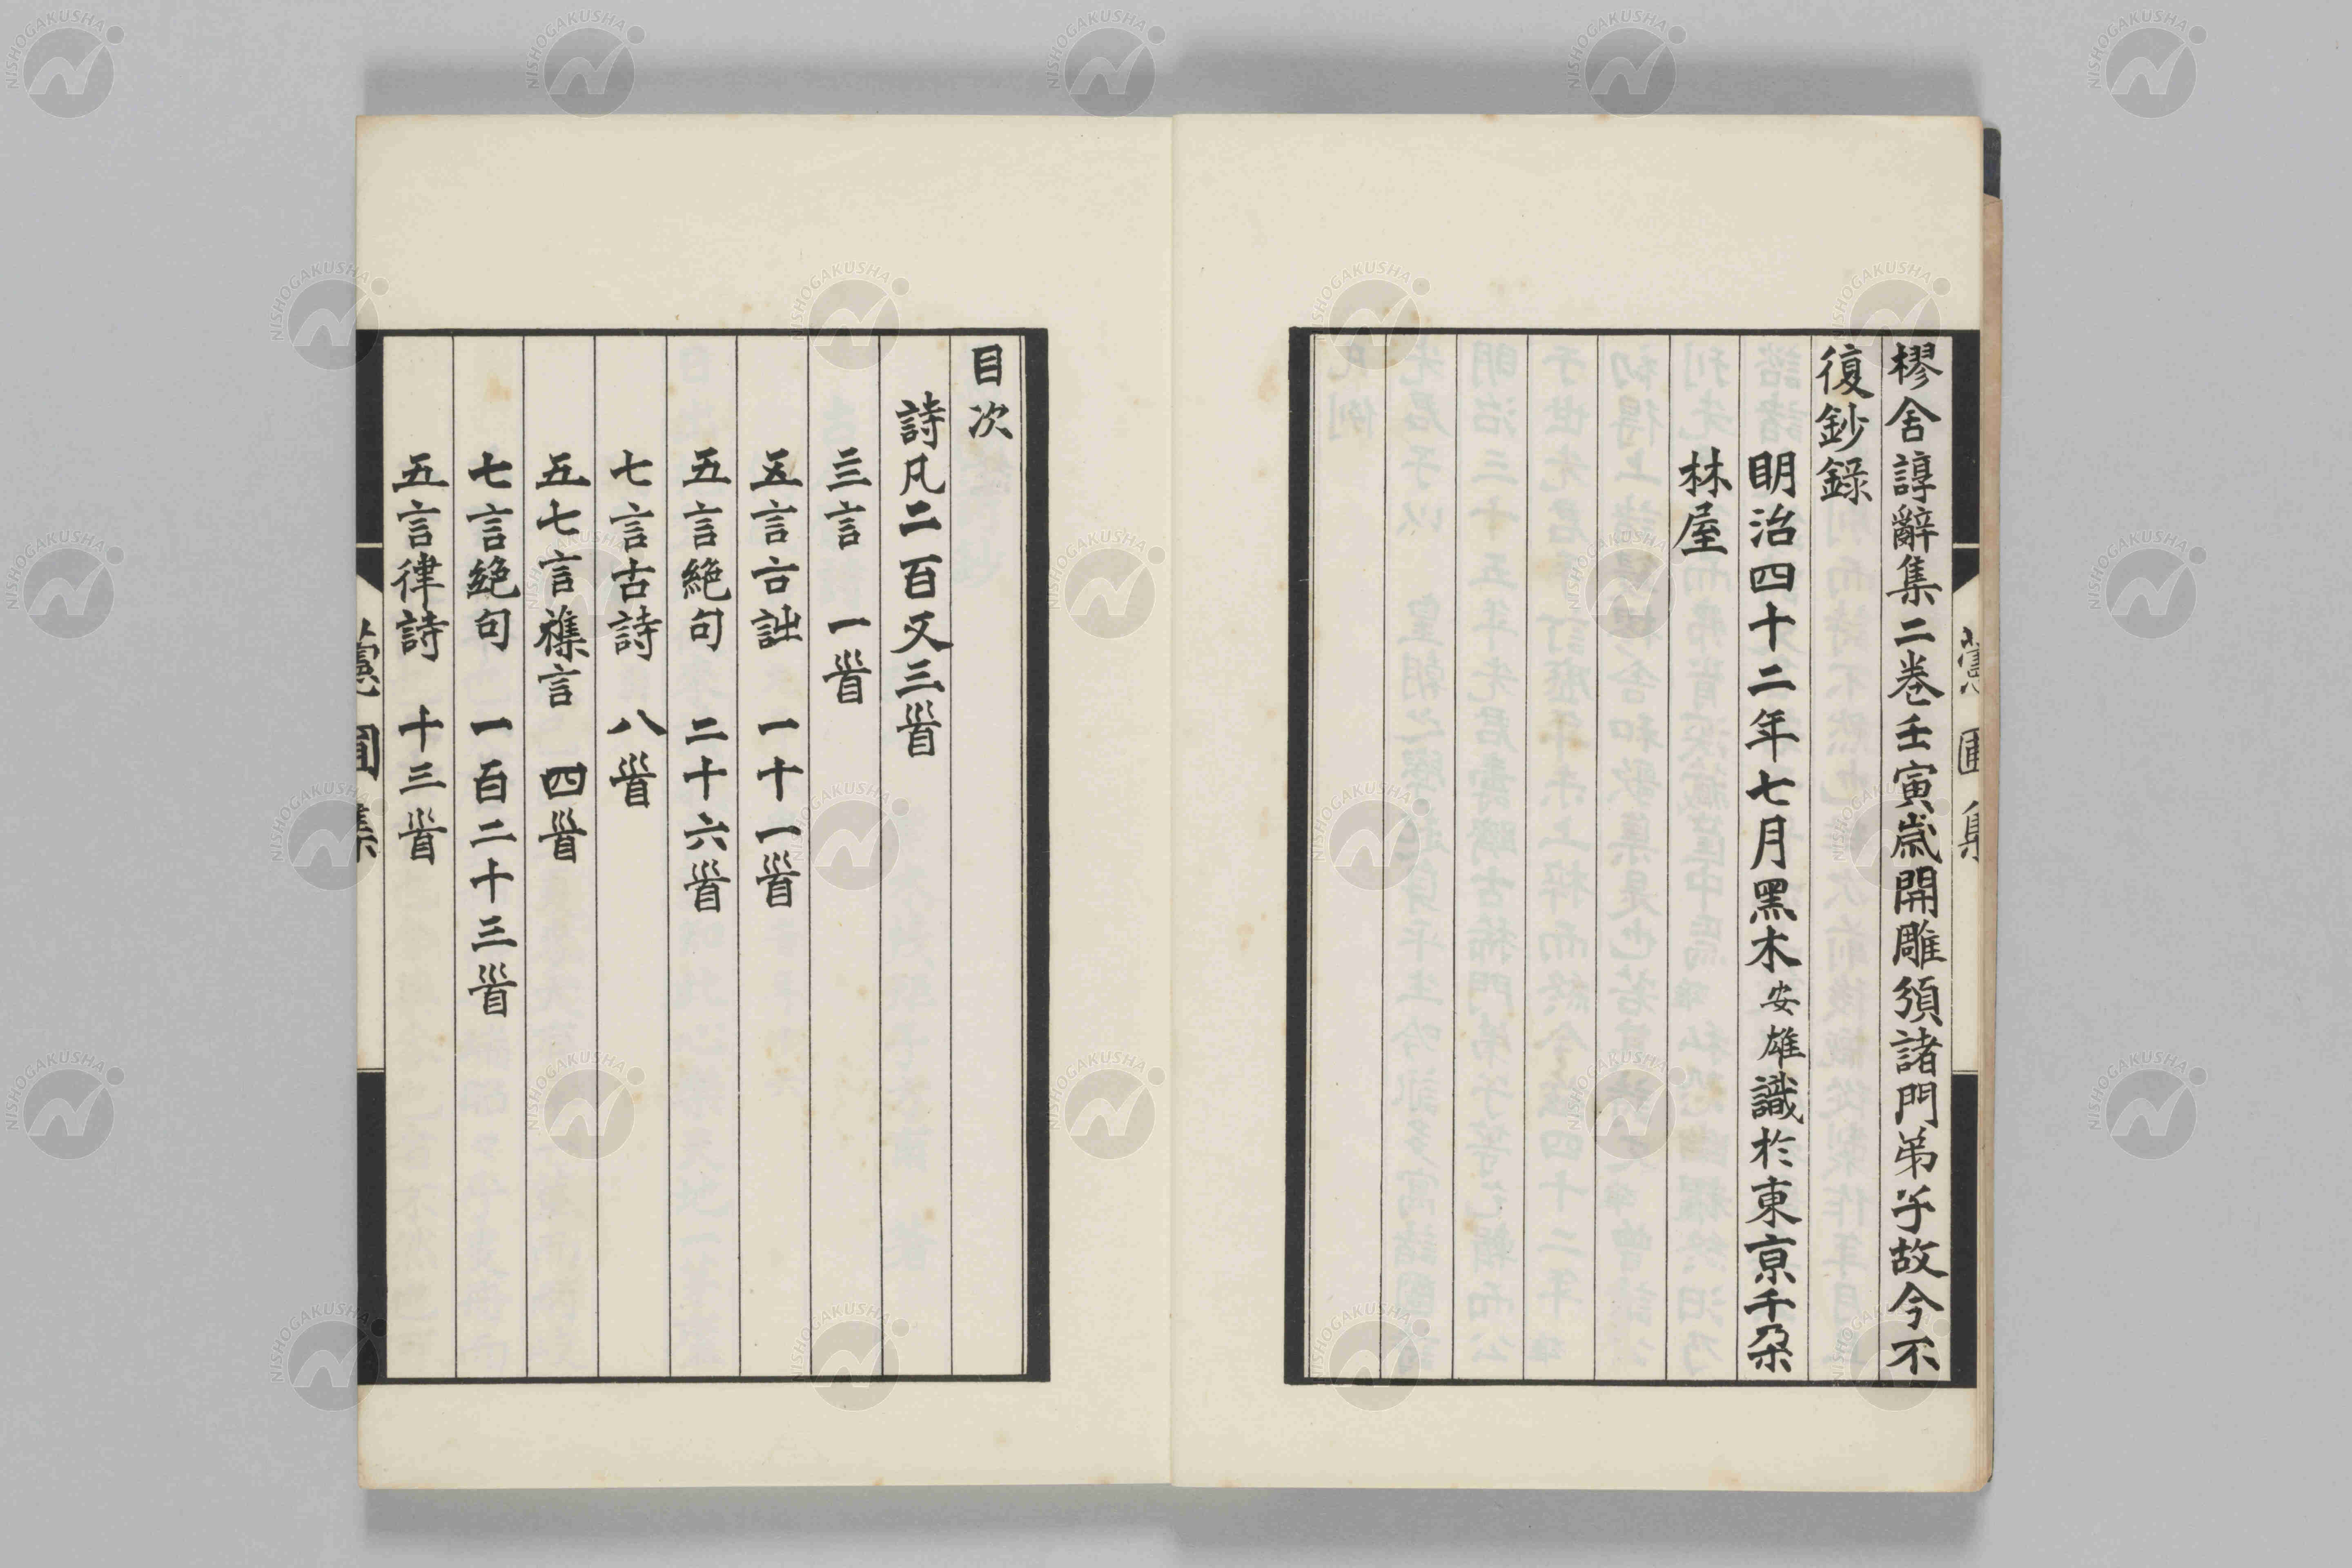 樛舍諄辭集二卷壬寅歲開雕頒諸門弟子故今不
復鈔錄
明治四十二年七月黑木安雄識於東京千朶
林屋
目次
詩凡二百又三首
三言 一首
五言古詩 一十一首
五言絶句 二十六首
七言古詩 八首
五七言襍言 四首
七言絶句 一百二十三首
五言律詩 十三首
NISHOGAKUSHA